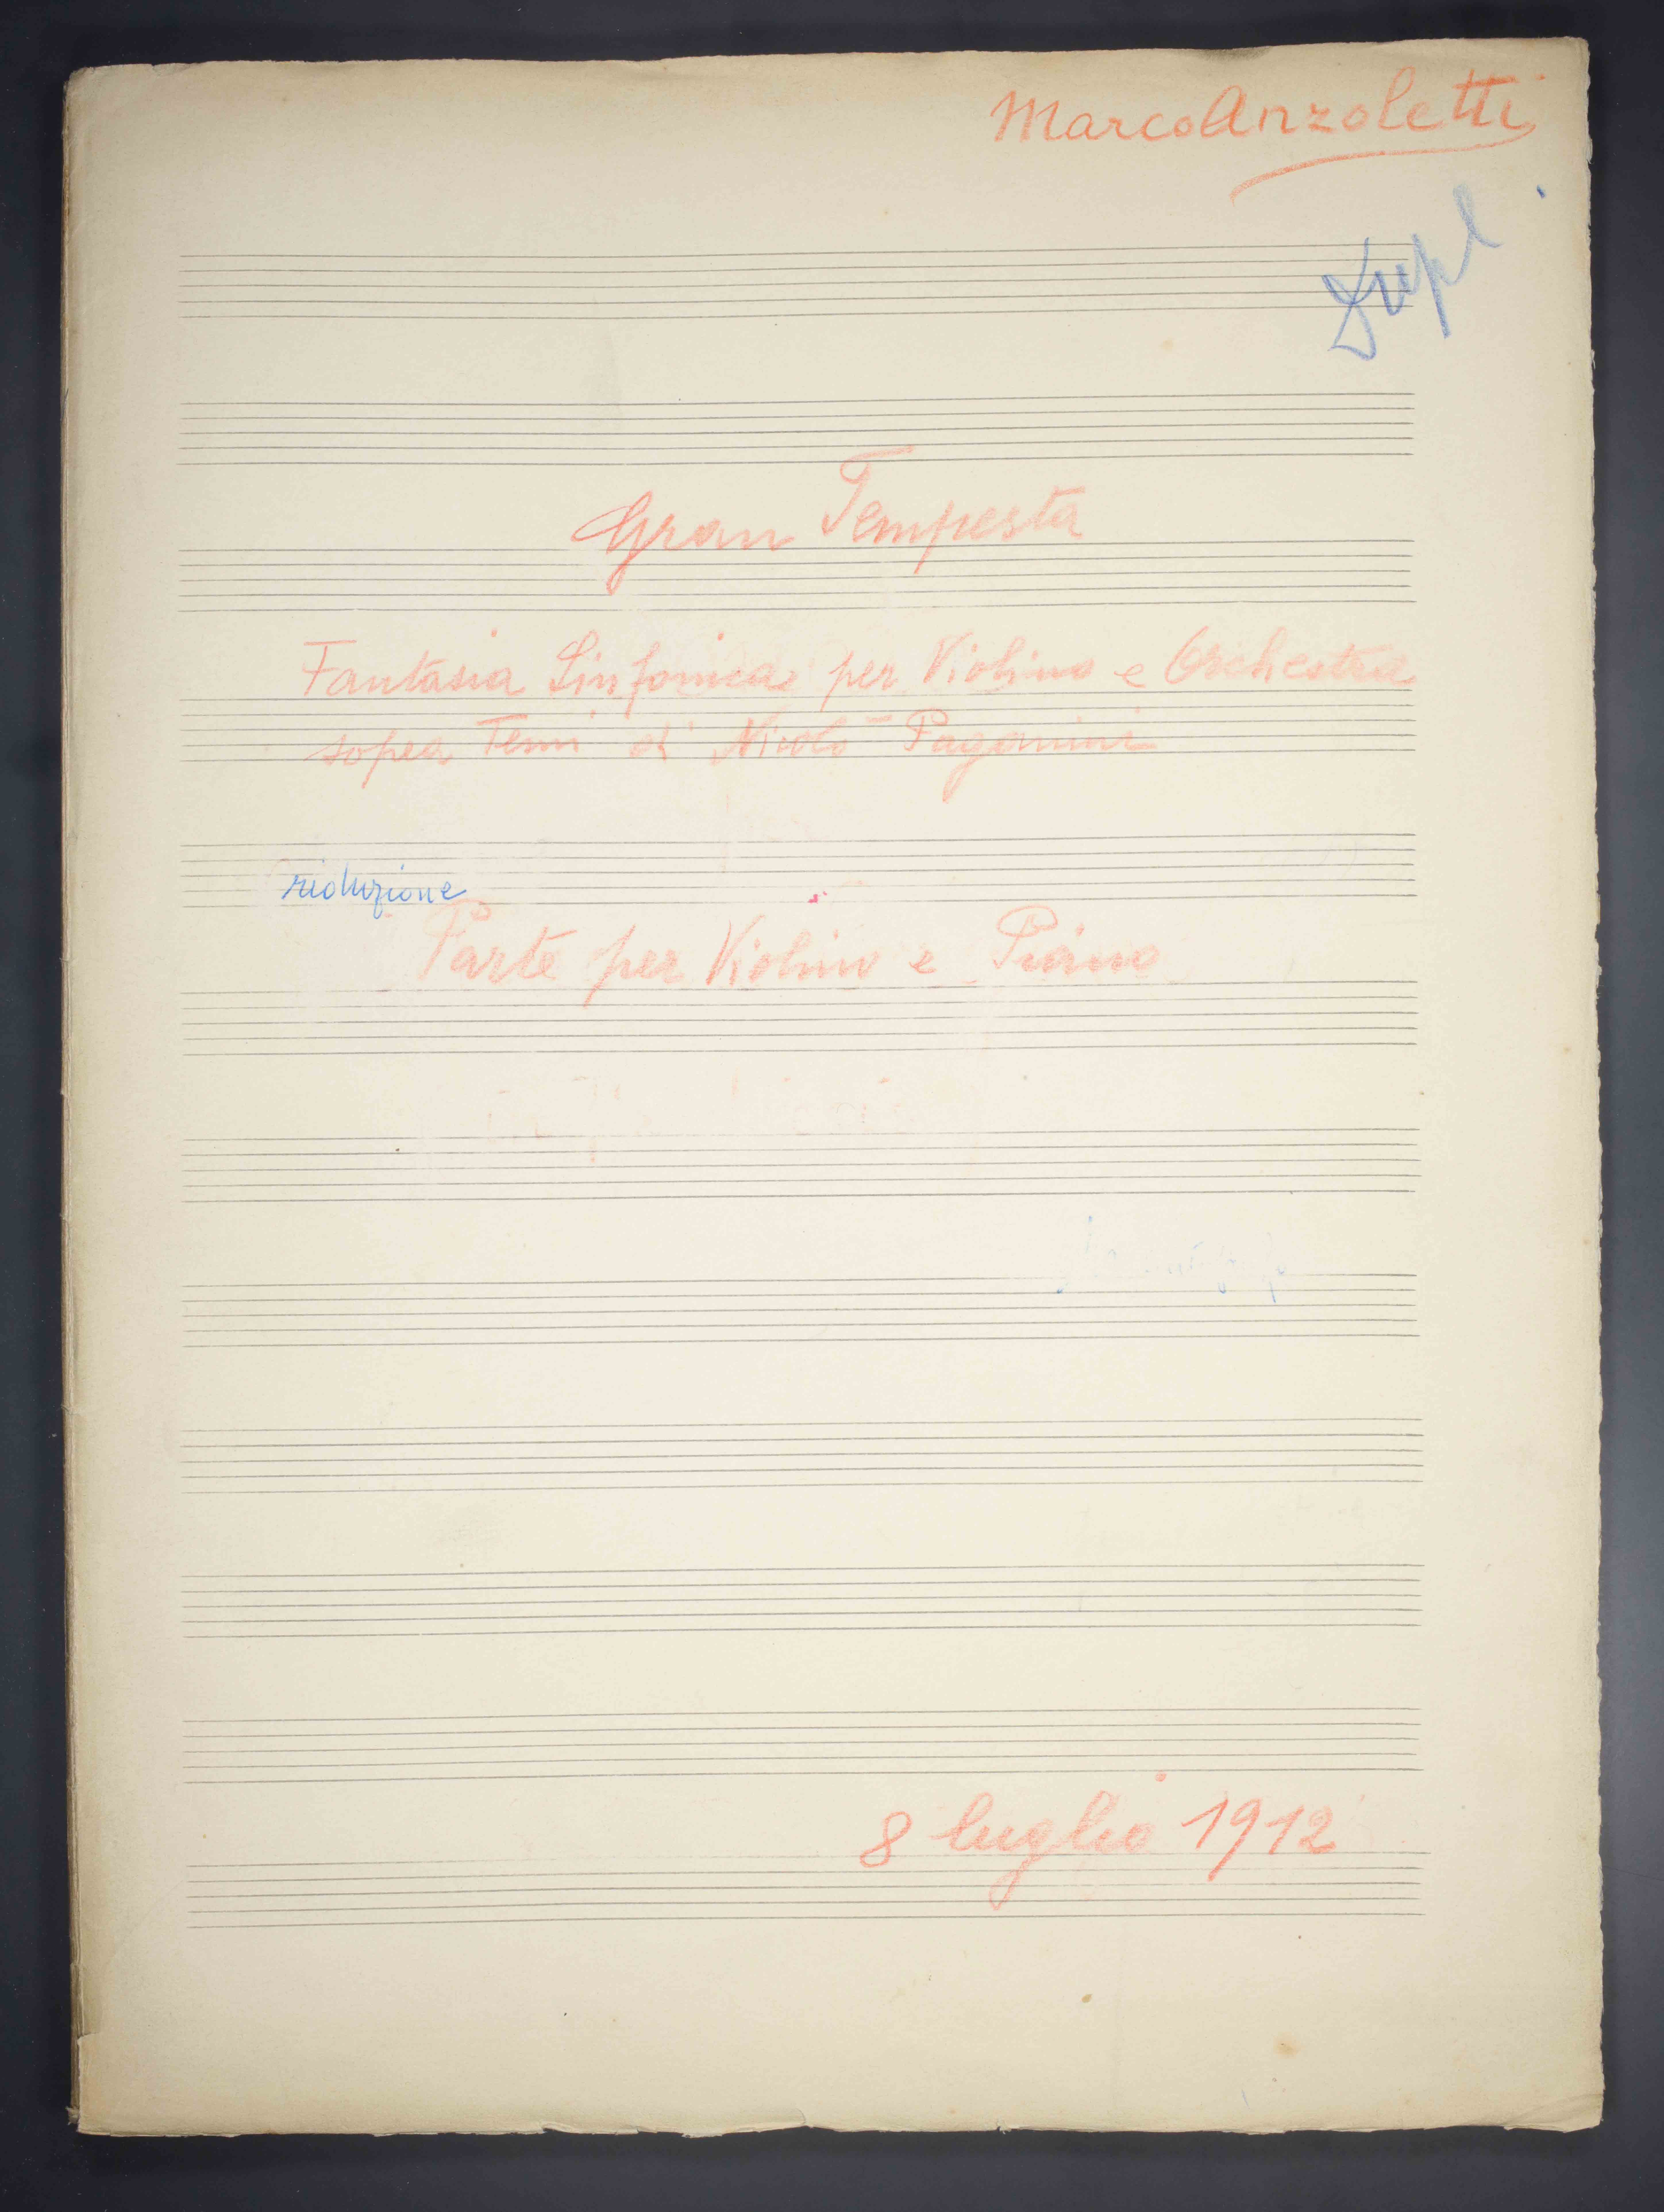 Marco Anzoletti
Dupl
Gran Tempesta
Fantasia Sinfonica per Violino e Orchestra
sopra Temi di Nicolò Paganini
riduzione
Parte per Violino e Piano
8 luglio 1912